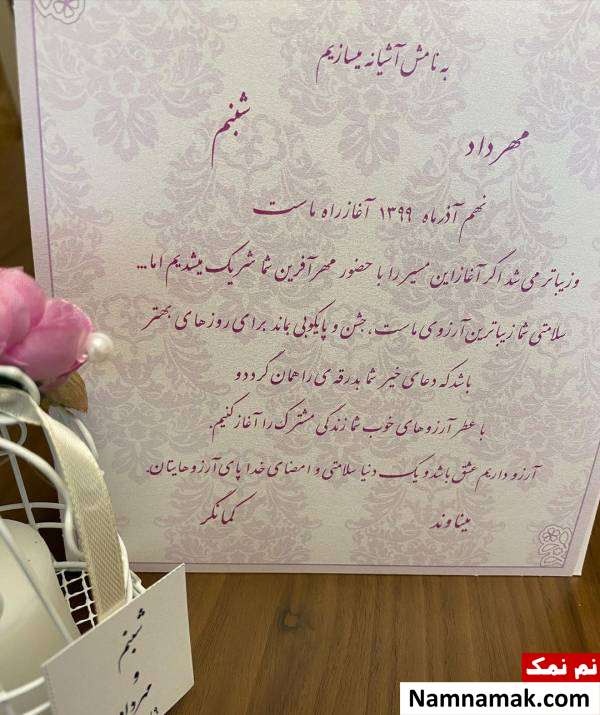 به نامش آشیانه میسازیم
مهرداد
شبنم
نهم آذرماه ۱۳۹۹ آغاز راه ماست
و زیباتر می شد اگر آغاز این مسیر را با حضور مهرآفرین شما شریک میشدیم اما...
سلامتی شما زیباترین آرزوی ماست، جشن و پایکوبی بماند برای روزهای بهتر
باشد که دعای خیر شما بدرقه ی راهمان گردد و
با عطر آرزوهای خوب شما زندگی مشترک را آغاز کنیم.
آرزو داریم عشق باشد و یک دنیا سلامتی و امضای خدا پای آرزوهایتان.
میناوند
کمانگر
شبنم
و
مهرداد
نم نمک
Namnamak.com